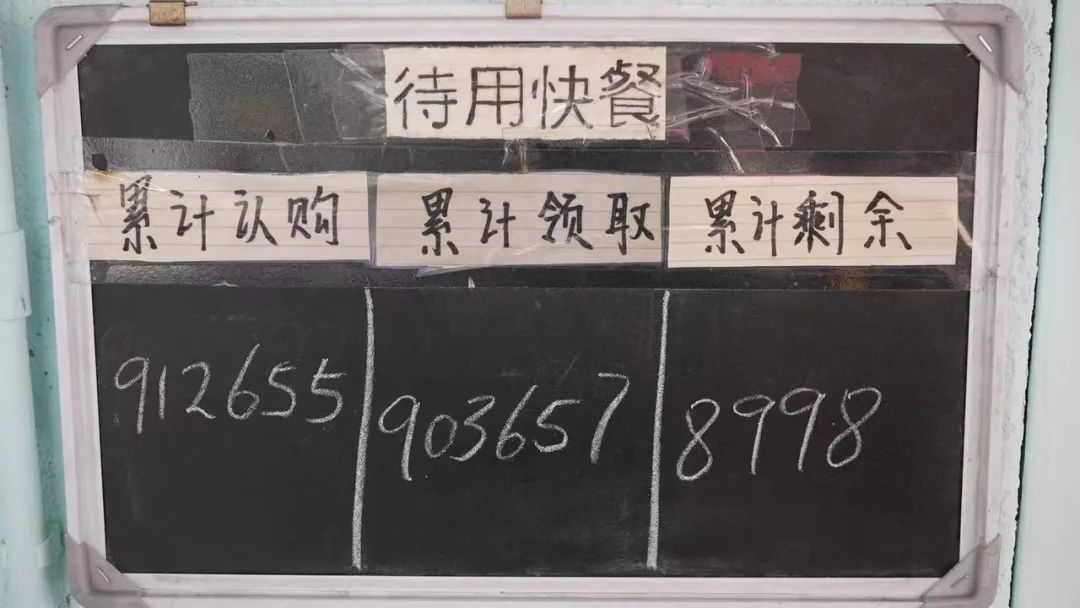 待用快餐
累计认购 累计领取 累计剩余
912655 903657 8998